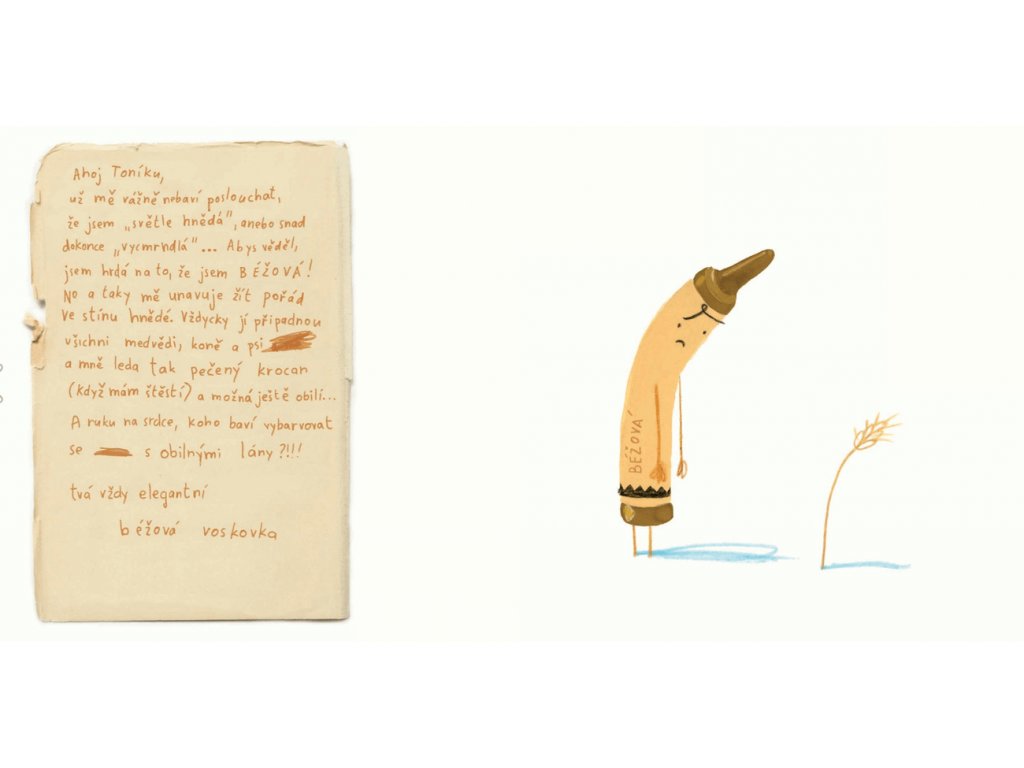 Ahoj Toníku,
už mě vážně nebaví poslouchat,
že jsem „světle hnědá", anebo snad
dokonce „vycmrndlá"... Abys věděl,
jsem hrdá na to, že jsem BÉŽOVÁ!
No a taky mě unavuje žít pořád
ve stínu hnědé. Vždycky jí připadnou
všichni medvědi, koně a psi
a mně leda tak pečený krocan
(když mám štěstí) a možná ještě obilí...
A ruku na srdce, koho baví vybarvovat
se s obilnými lány?!!!
tvá vždy elegantní
béžová voskovka
BÉŽOVÁ